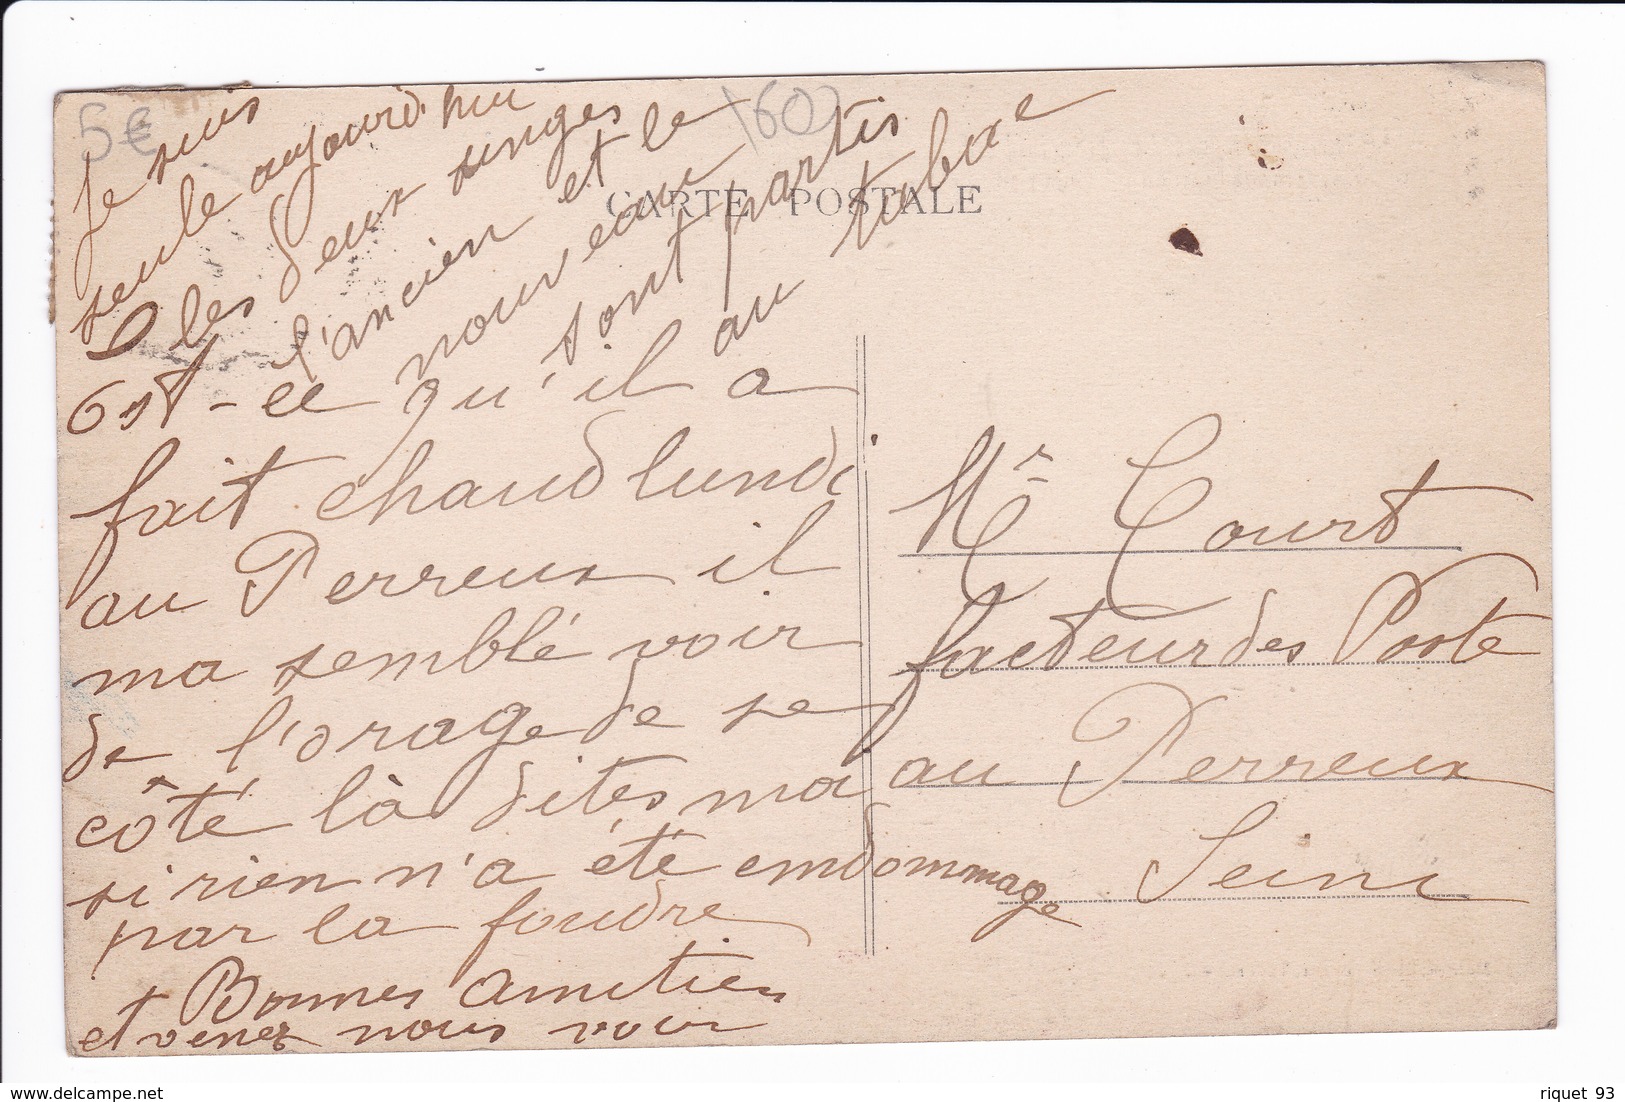 5€
160
Je suis
seule aujourd'hui
les deux singes
l'ancien et le
nouveau
sont partis
au tabac
CARTE POSTALE
Est-ce qu'il a
fait chaud lundi
au Perreux il
ma semblé voir
de l'orage de se
côté là dites moi
si rien n'a été endommagé
par la foudre
Bonnes amitiés
et venez nous voir
Mr Court
facteur des Poste
au Perreux
Seine
riquet 93